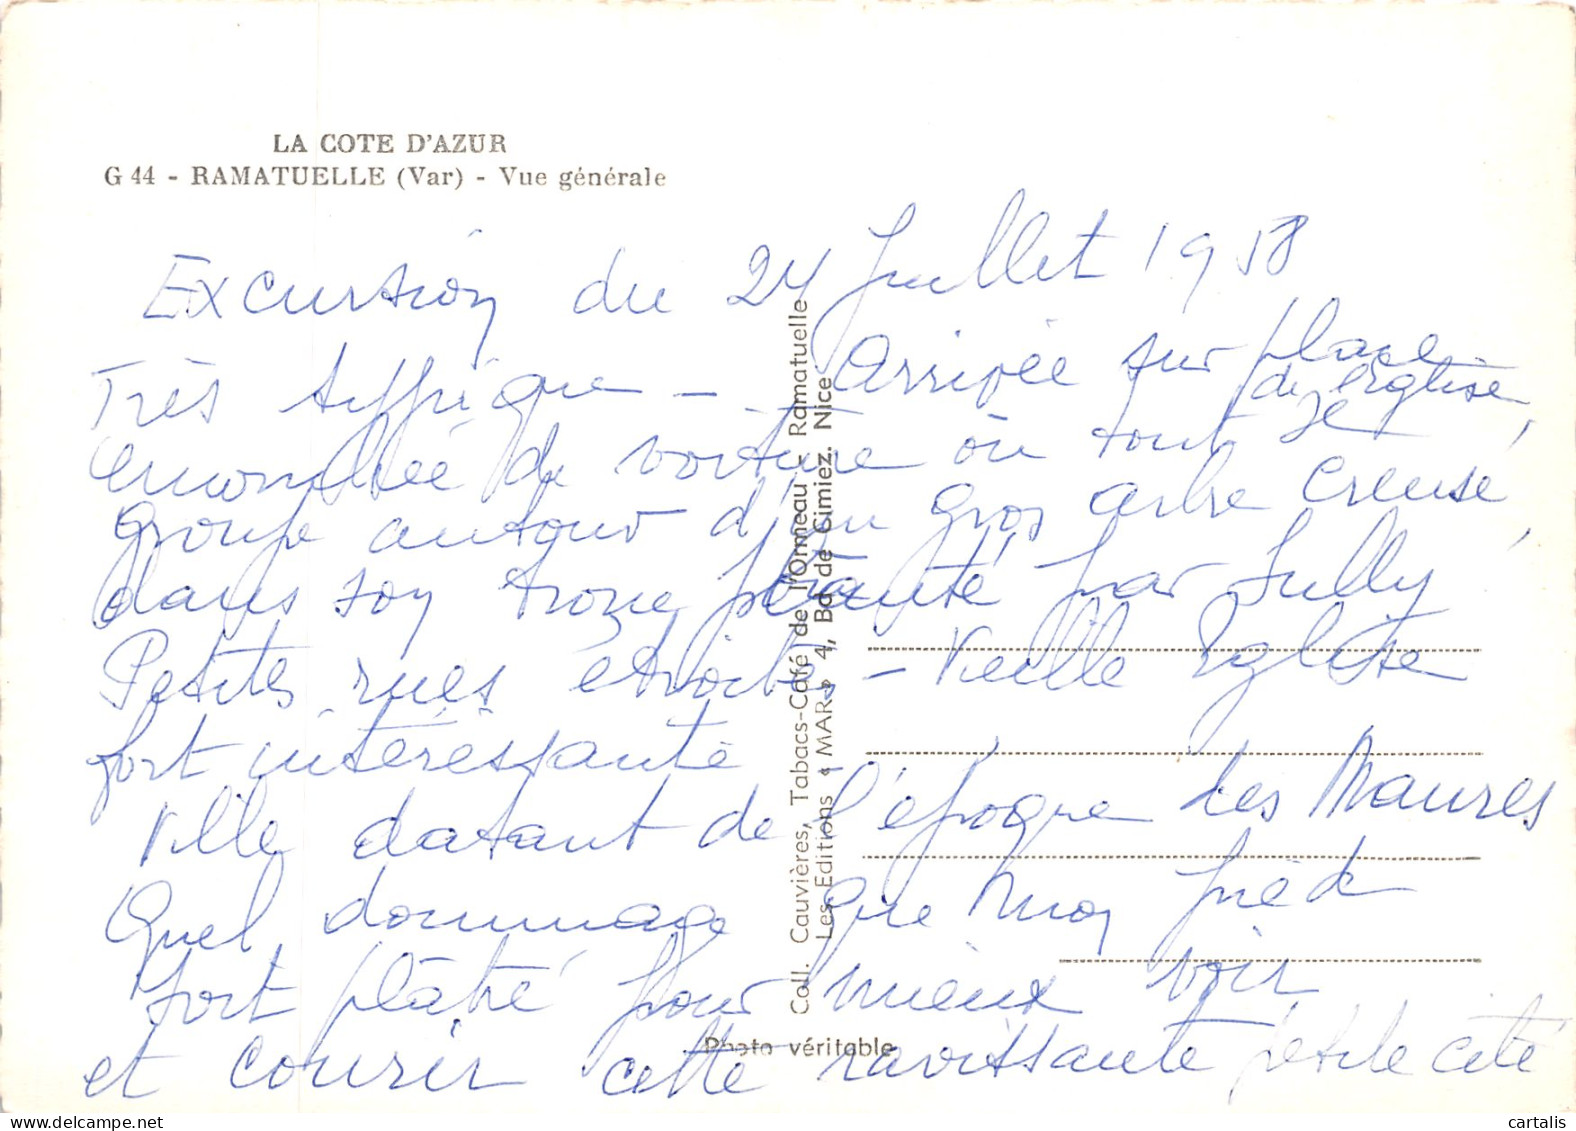 LA COTE D'AZUR
G 44 - RAMATUELLE (Var) - Vue générale
Excursion du 24 Juillet 1958
Très typique - Arrivée sur place
de l'Eglise,
de voiture où tout se
groupe autour d'un gros arbre creusé,
dans son tronc planté par Sully
Petites rues étroites - Vieille Eglise
fort intéressante
Ville datant de l'époque des Maures
Quel dommage que mon pied
soit plâtré pour mieux voir
et courir cette ravissante petite cité
Coll. Cauvières, Tabacs-Café de l'Ormeau - Ramatuelle
Les Editions « MAR » 4, Bd de Cimiez. Nice
Photo véritable
https://www.delcampe.net
cartalis